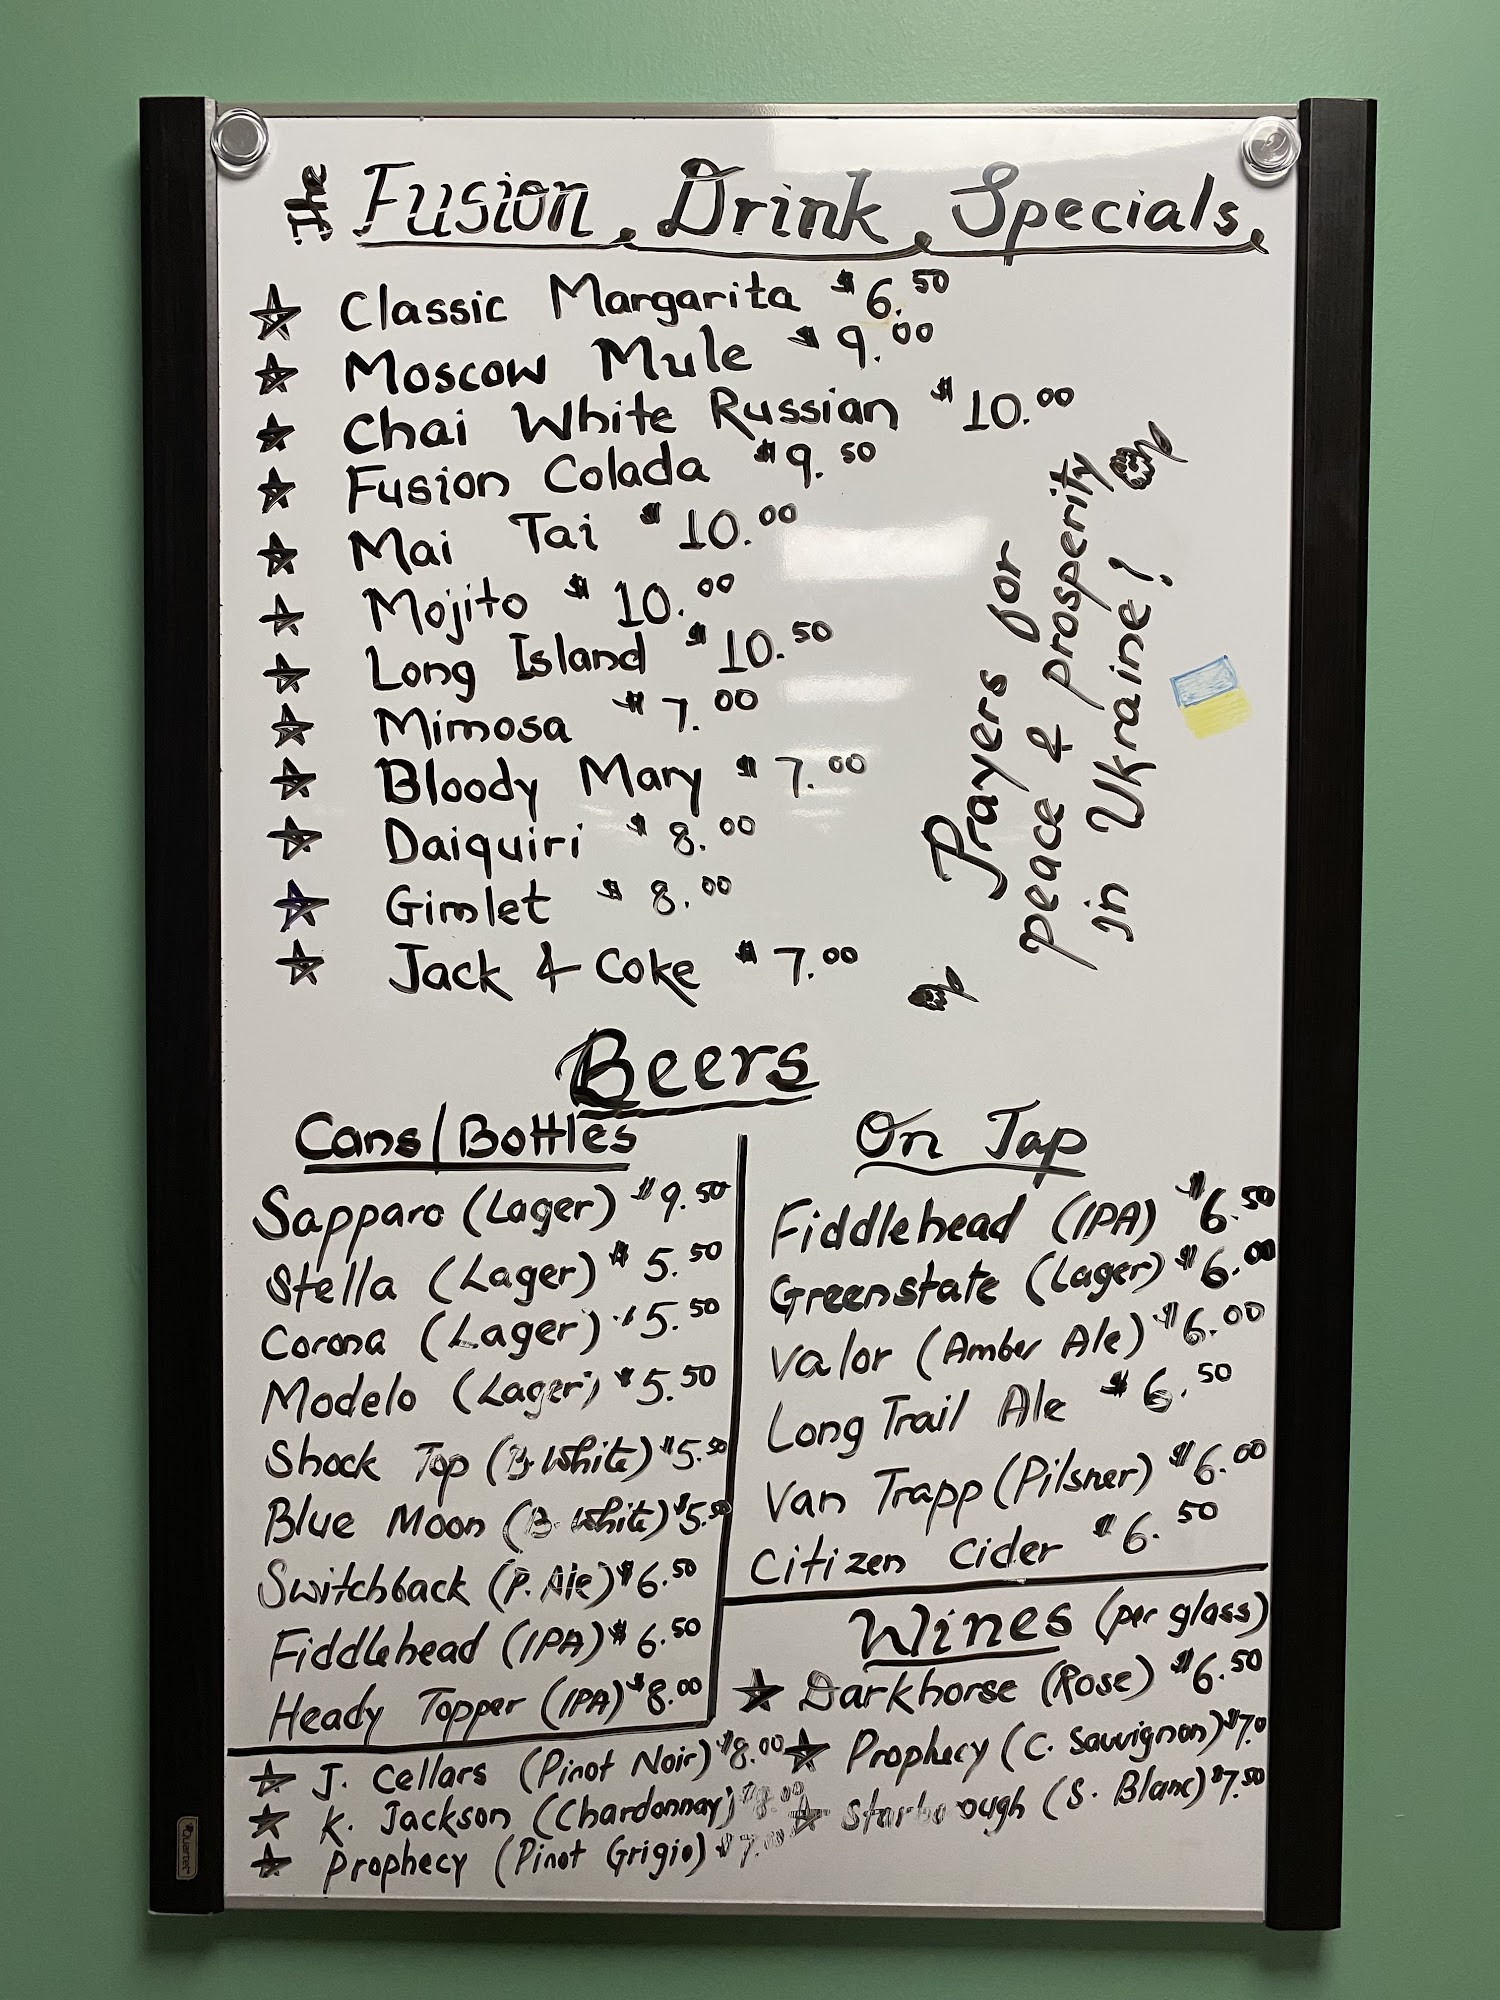 The Fusion Drink Specials
Classic Margarita $6.50
Moscow Mule $9.00
Chai White Russian $10.00
Fusion Colada $9.50
Mai Tai $10.00
Mojito $10.00
Long Island $10.50
Mimosa $7.00
Bloody Mary $7.00
Daiquiri $8.00
Gimlet $8.00
Jack & Coke $7.00
Prayers for
peace & prosperity
in Ukraine!
Beers
Cans/Bottles
Sapparo (Lager) $9.50
Stella (Lager) $5.50
Corona (Lager) $5.50
Modelo (Lager) $5.50
Shock Top (B. White) $5.50
Blue Moon (B. White) $5.50
Switchback (P. Ale) $6.50
Fiddlehead (IPA) $6.50
Heady Topper (IPA) $8.00
On Tap
Fiddlehead (IPA) $6.50
Greenstate (Lager) $6.00
Valor (Amber Ale) $6.00
Long Trail Ale $6.50
Van Trapp (Pilsner) $6.00
Citizen Cider $6.50
Wines (per glass)
Darkhorse (Rose) $6.50
Prophecy (C. Sauvignon) $7.0
Starborough (S. Blanc) $7.50
J. Cellars (Pinot Noir) $8.00
K. Jackson (Chardonnay) $8.00
Prophecy (Pinot Grigio) $7.00
Quartet